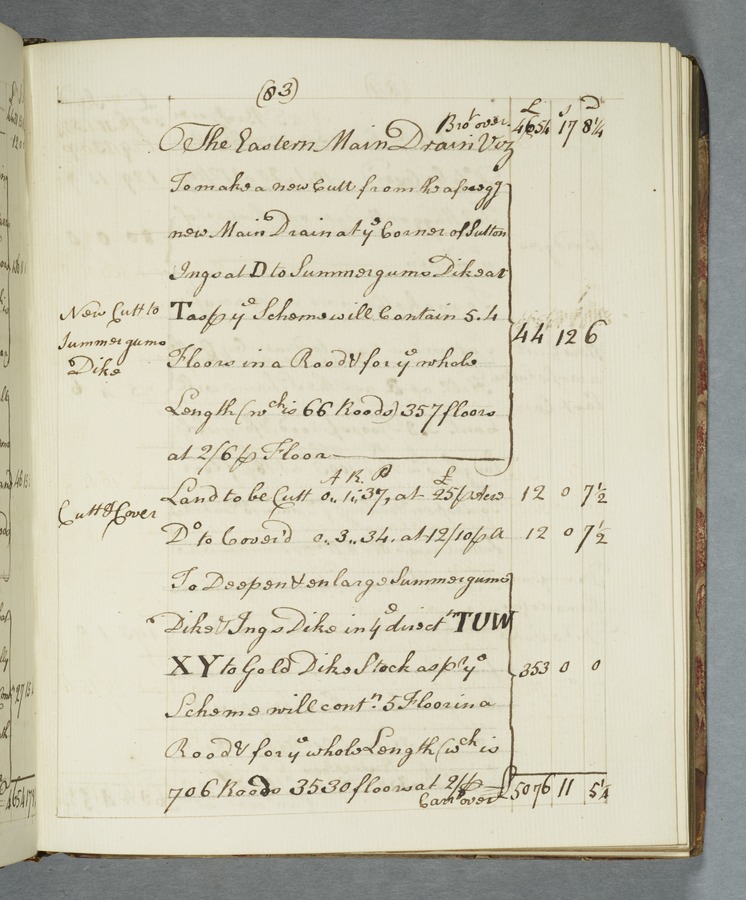 (83)
£ s D
Bro.t over. 4654 17 8¼
The Eastern Main Drain Viz
To make a new Cutt from the afsregg
new Main Drain at yᵉ Corner of Sutton
Ings at D to Summergums Dike at
T as p yᵉ Scheme will Contain 5.4
New Cutt to
Summergums
Dike
44 12 6
Floors in a Rood & for yᵉ whole
Length (wᶜʰ is 66 Roods) 357 floors
at 2/6 p Floor
A R. P £
Cutt & Cover
Land to be Cutt 0,, 1,, 37, at 25 p Acre 12 0 7½
Dᵒ to Cover'd 0,, 3,, 34. at 12/10 p A 12 0 7½
To Deepen & enlarge Summergums
Dike & Ings Dike in yᵉ directⁿ TUW
XY to Gold Dike Stock as pʳ yᵉ
353 0 0
Scheme will contⁿ. 5 Floor in a
Rood & for yᵉ whole Length (wᶜʰ is
706 Roods 3530 floors at 2/ p
Carr.ᵈ over £ 5076 11 5¼